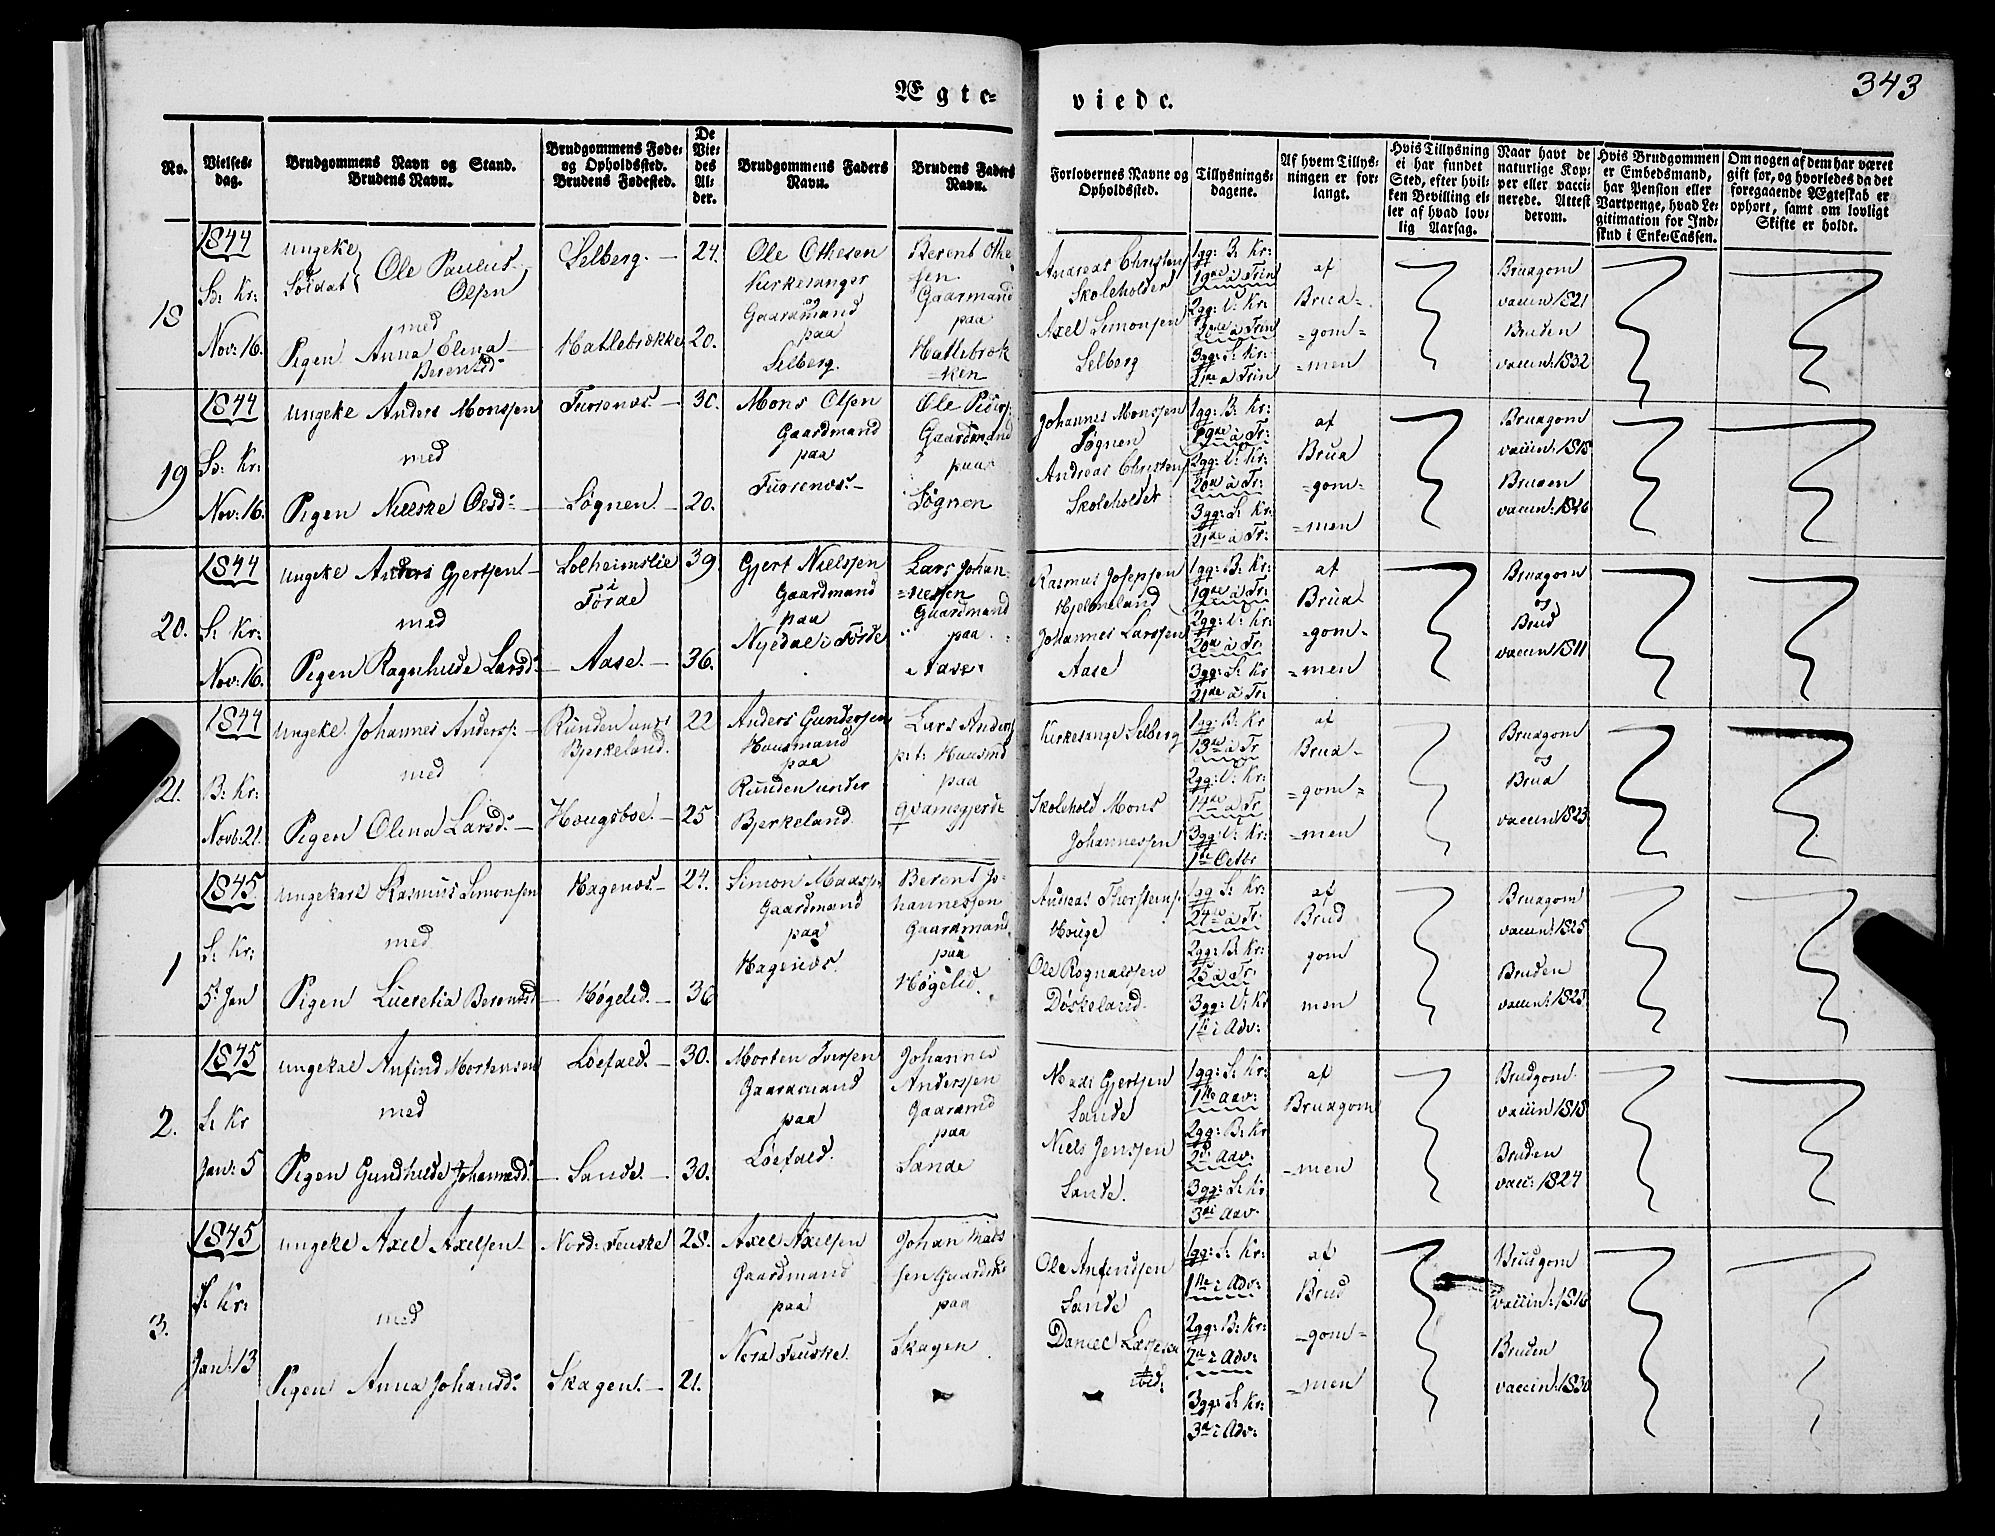 343
Ægte-
viede.
No.
Vielses-
dag.
Brudgommens Navn og Stand.
Brudens Navn.
Brudgommens Føde-
og Opholdssted.
Brudens Fødested.
De
Vie-
des
Al-
der.
Brudgommens Faders
Navn.
Brudens Faders
Navn.
Forlovernes Navne og
Opholdssted.
Tillysnings-
dagene.
Af hvem Tillys-
ningen er for-
langt.
Hvis Tillysning
ei har fundet
Sted, efter hvil-
ken Bevilling el-
ler af hvad lov-
lig Aarsag.
Naar havt de
naturlige Kop-
per eller vacci-
nerede. Attest
derom.
Hvis Brudgommen
er Embedsmand,
har Pension eller
Vartpenge, hvad Le-
gitimation for Ind-
skud i Enke-Cassen.
Om nogen af dem har været
gift før, og hvorledes da det
foregaaende Ægteskab er
ophørt, samt om lovligt
Skifte er holdt.
18
1844
B: Kr:
Nov: 16.
ungeke
Soldat Ole Paulus
Olsen
med
Pigen Anna Elena
Berentsd
Selberg.
Hatlebrække
24.
20.
Ole Othesen
Kirkesanger
og
Gaardmand
paa
Selberg.
Berent Othe
sen
Gaarmand
paa
Hatlebræk
=ken
Andreas Christens
Skoleholder
Axel Simonsen
Selberg
1gg: B: Kr:
19de à Trin
2gg: V: Kr:
20de à Trin
3gg: S: Kr:
21de à Trin
af
Brud=
=gom=
=men
Brudgom
vaccin 1821
Bruden
vaccin: 1832
19
1844
B: Kr:
Nov: 16.
ungeke Anders Monssen
med
Pigen Nilske Olsd:
Fursenæs.
Søgnen.
30.
20.
Mons Olsen
Gaardmand
paa
Fursenæs.
Ole Peders:
Gaardmand
paa
Søgnen
Johannes Monssen
Søgnen
Andreas Christens
Skoleholder
1gg: B: Kr:
19de à Tr:
2gg: V: Kr:
20de à Tr:
3gg: S: Kr:
21de à Tr:
af
Brud
=gom=
=men
Brudgom
Bruden
20.
1844
S: Kr:
Nov: 16.
ungeke Anders Gjertsen
med
Pigen Ragnhilde Larsd:
Solheimslie
i
Førde
Aase.
39
36.
Gjert Nielssen
Gaardmand
paa
Nydal i Førde
Lars Johan=
=nessen
Gaardmand
paa
Aase
Rasmus Josepsen
Hjelmeland
Johannes Larssen
Aase
1gg: B: Kr:
19de à Tr:
2gg: V: Kr:
20de à Tr:
3gg: S: Kr
21de à Tr:
af
Brud
=gom=
=men
Brudgom
og
Brud
vaccin 1811
21.
1844
B: Kr:
Novb: 21.
ungeke. Johannes Anderss:
med
Pigen Olina Larsd:
Runden und:
Bjerkeland.
Hougsboe.
22
25
Anders Gunderssen
Huusmand
paa
Runden under
Bjerkeland.
Lars Anders
p: t: Huusmd
paa
Qvamsgjerde
Kirkesange Selberg
Skolehold Mons
Johannessen
1gg: B: Kr
13de à Tr
2gg: V: Kr:
14de à Tr
3gg: V: Kr:
1te Octbr
af
Brud=
=gom=
=men
Brudgom
og
Brud
vaccin 1823
1
1845.
S: Kr:
5t Jan
ungekarl Rasmus Simonsen
med
Pigen Lucretia Berentsd
Hagenæs
Høgelid.
24.
36
Simon Madss:
Gaardmand
paa
Hagenæs.
Berent Jo=
hannessen
Gaardmand.
paa
Høgelid.
Andreas Thorstens:
Houge
Ole Rognaldsen
Døskeland.
1gg S: Kr:
24de à Tr:
2gg: B: Kr:
25 à Tr:
3gg: V: Kr
1te i Adv:
af
Brud
gom
men
Brudgom
vaccin: 1825
Bruden
vaccin: 1823.
2.
1845
S: Kr
Jan: 5
ungekal Anfind Mortensen
med
Pigen Gundhilde Johannesd:
Løefald.
Sande.
30.
30.
Morten Iversen
Gaardmand
paa
Løefald.
Johannes
Anderssen
Gaardmd
paa
Sande
Mads Gjertsen
Sande
Niels Jenssen
Sande.
1gg: S: Kr:
1te Adv:
2gg: B: Kr
2d Adv:
3gg: S: Kr
3die Adv:
af
Brudgom
=men
Brudgom.
vaccin 1818
Bruden
vacc: 1824
3.
1845
S: Kr:
Jan: 13
ungeke Axel Axelsen
med
Pigen Anna Johansd:
Nord: Fenske
Skagen.
28.
21.
Axel Axelsen
Gaardmand
paa
Nord Fenske.
Johan Mads
sen Gaardmd
paa
Skagen
Ole Anfindsen
Sande
Daniel Larssen
ibid.
1gg: S: Kr:
1te i Adv:
2gg: B: Kr:
2d i Adv:
3gg: S: Kr:
3d i Adv:
af
Brud
=gom=
=men
Brudgom
vaccin: 1816
Bruden
vaccin: 1830